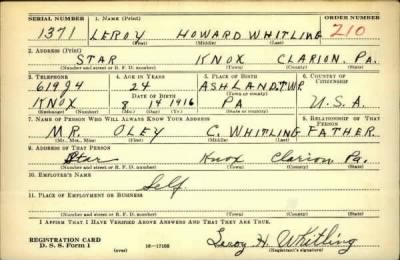 SERIAL NUMBER 1. NAME (Print) ORDER NUMBER
1371 LEROY HOWARD WHITLING 210
(First) (Middle) (Last)
2. ADDRESS (Print)
STAR KNOX CLARION, PA.
(Number and street or R. F. D. number) (Town) (County) (State)
3. TELEPHONE 4. AGE IN YEARS 5. PLACE OF BIRTH 6. COUNTRY OF CITIZENSHIP
619J4 24 ASHLAND TWP.
DATE OF BIRTH (Town or county)
KNOX 8 14 1916 PA U.S.A.
(Exchange) (Number) (Mo.) (Day) (Yr.) (State or country)
7. NAME OF PERSON WHO WILL ALWAYS KNOW YOUR ADDRESS 8. RELATIONSHIP OF THAT PERSON
MR. OLEY C. WHITLING FATHER
(Mr., Mrs., Miss) (First) (Middle) (Last)
9. ADDRESS OF THAT PERSON
Star Knox Clarion Pa.
(Number and street or R. F. D. number) (Town) (County) (State)
10. EMPLOYER'S NAME
Self
11. PLACE OF EMPLOYMENT OR BUSINESS
(Number and street or R. F. D. number) (Town) (County) (State)
I AFFIRM THAT I HAVE VERIFIED ABOVE ANSWERS AND THAT THEY ARE TRUE.
REGISTRATION CARD
D. S. S. Form 1 (over) 16—17105 Leroy H. Whitling
(Registrant's signature)